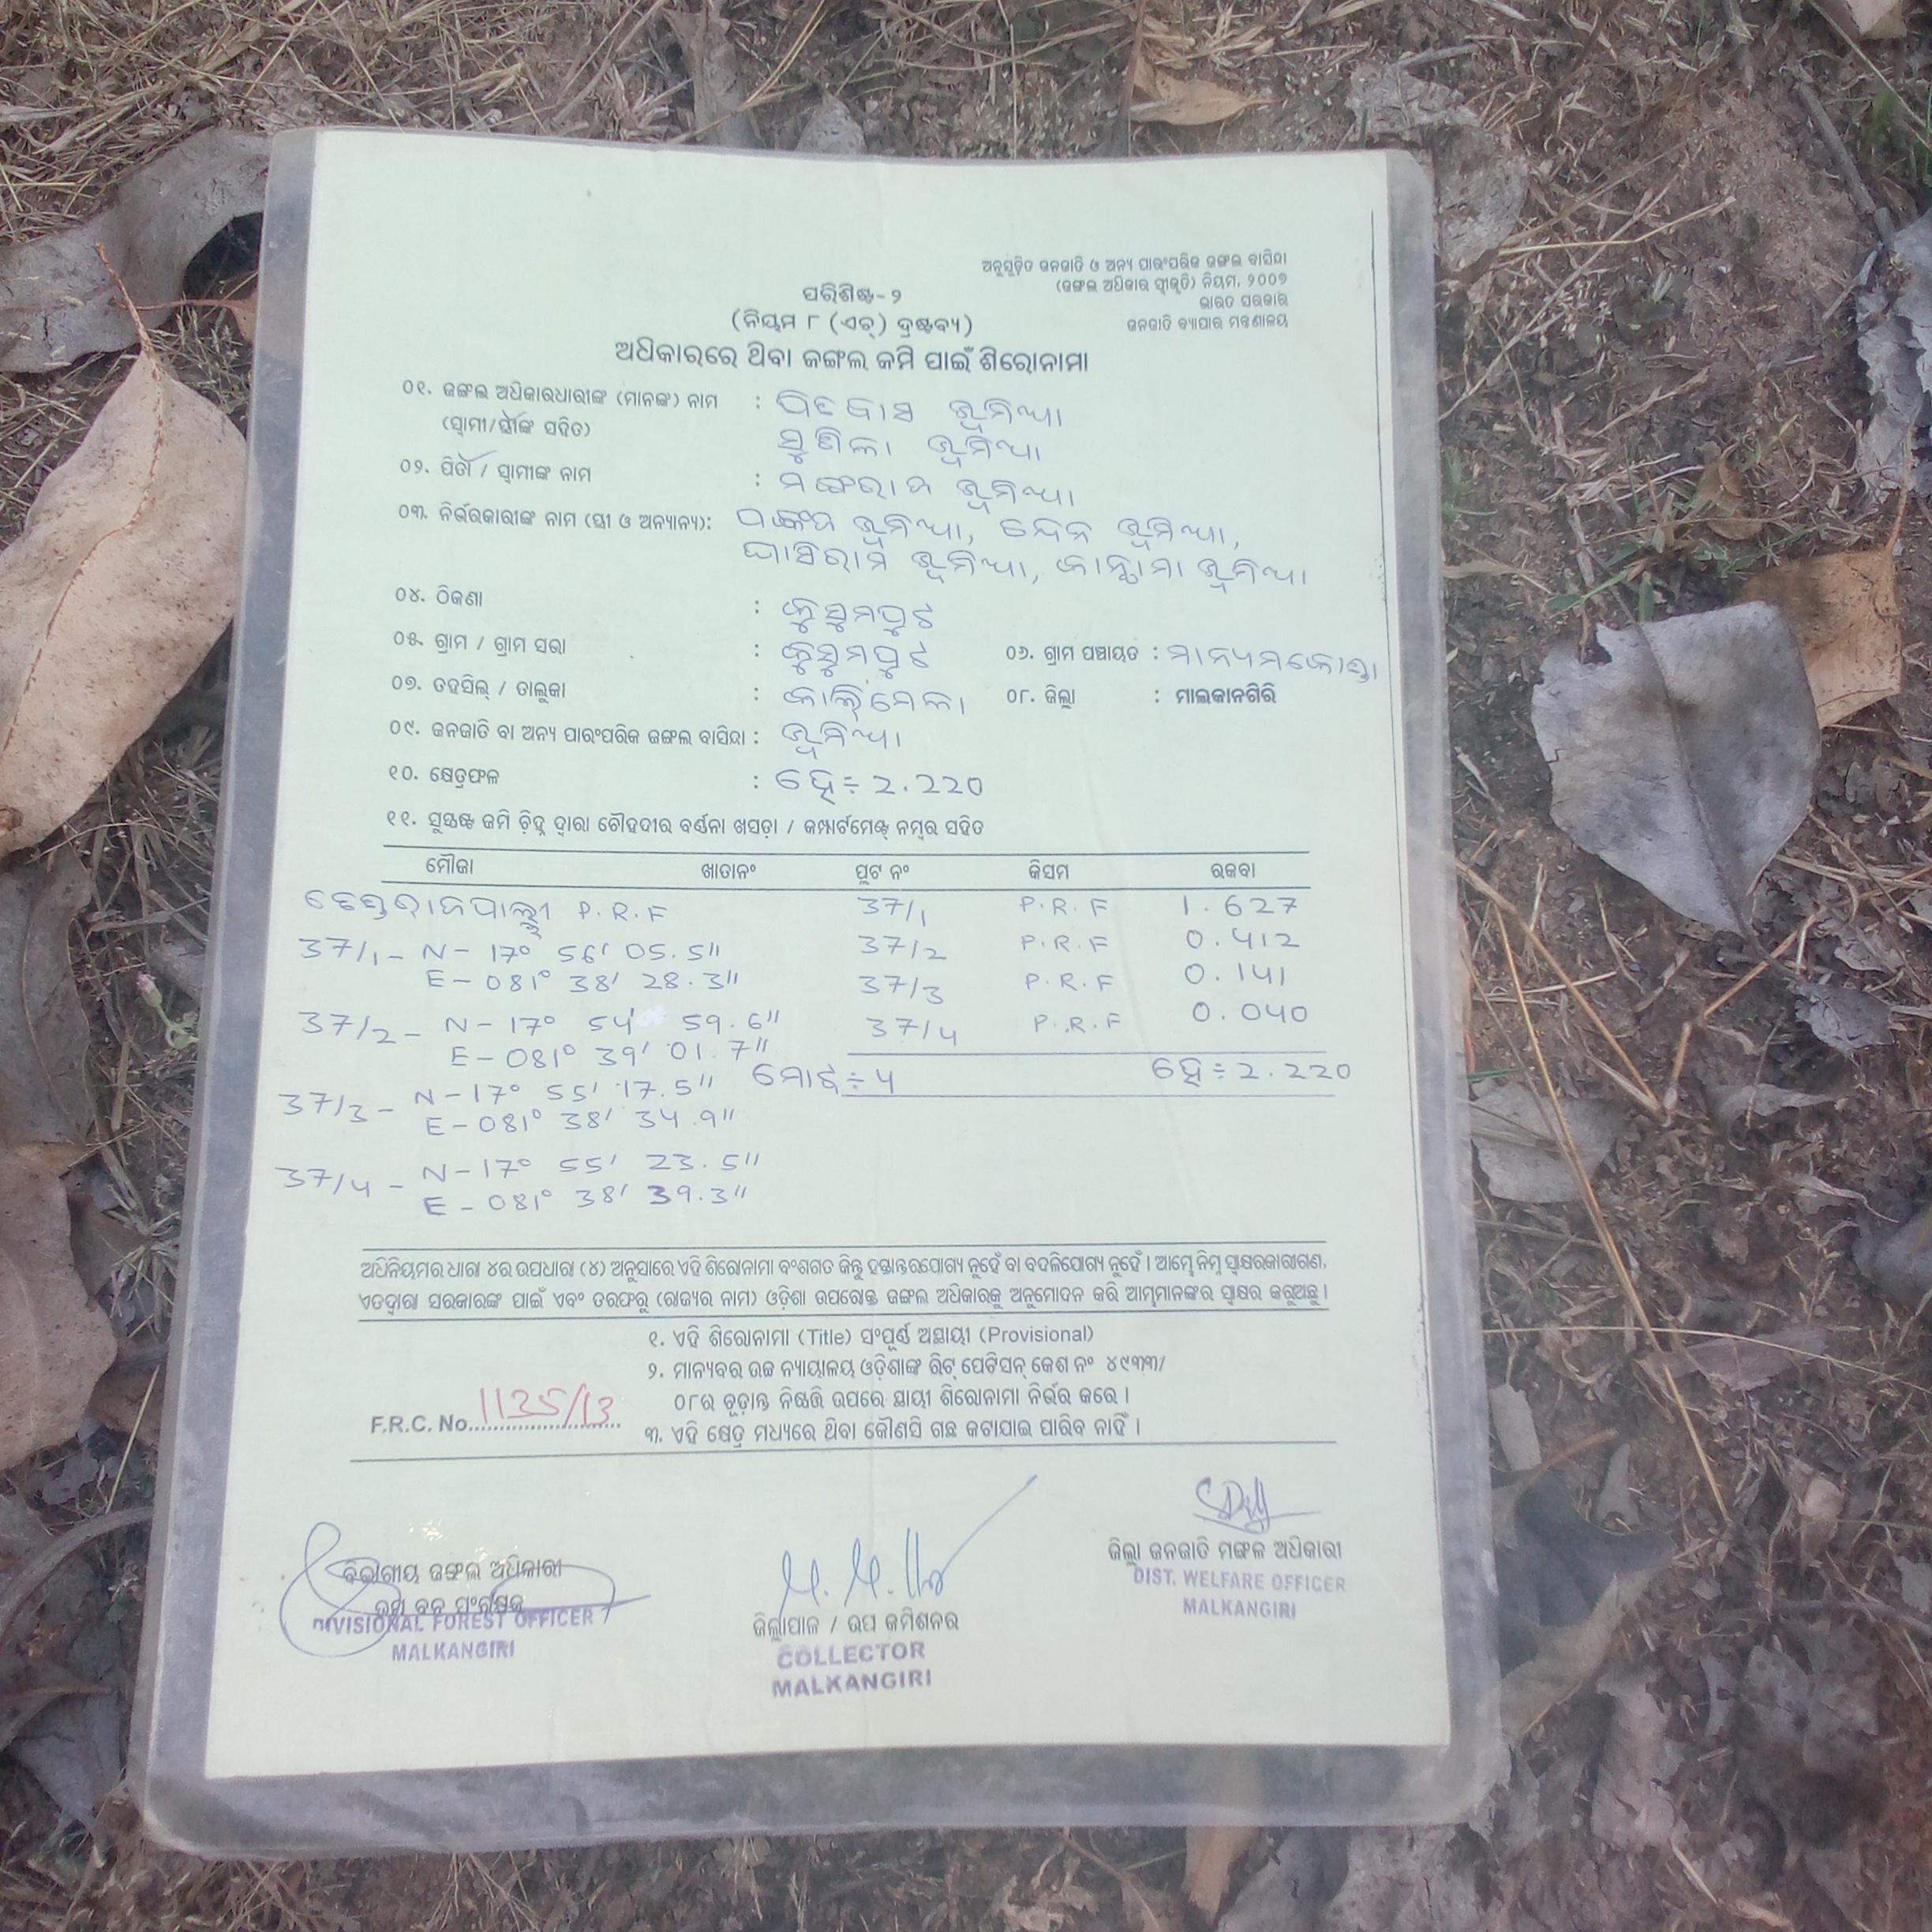 ଅନୁସୂଚିତ ଜନଜାତି ଓ ଅନ୍ୟ ପାରଂପରିକ ଜଙ୍ଗଲ ବାସିନ୍ଦା
(ଜଙ୍ଗଲ ଅଧିକାର ସ୍ୱୀକୃତି) ନିୟମ, ୨୦୦୭
ଭାରତ ସରକାର
ଜନଜାତି ବ୍ୟାପାର ମନ୍ତ୍ରଣାଳୟ
ପରିଶିଷ୍ଟ-୨
(ନିୟମ ୮ (ଏଚ୍) ଦ୍ରଷ୍ଟବ୍ୟ)
ଅଧିକାରରେ ଥିବା ଜଙ୍ଗଲ ଜମି ପାଇଁ ଶିରୋନାମା
୦୧. ଜଙ୍ଗଲ ଅଧିକାରଧାରୀଙ୍କ (ମାନଙ୍କ) ନାମ : ଭୂମିଆ
(ସ୍ୱାମୀ/ସ୍ତ୍ରୀଙ୍କ ସହିତ) ଭୂମିଆ
୦୨. ପିତା / ସ୍ୱାମୀଙ୍କ ନାମ : ଭୂମିଆ
୦୩. ନିର୍ଭରକାରୀଙ୍କ ନାମ (ସ୍ତ୍ରୀ ଓ ଅନ୍ୟାନ୍ୟ): ଭୂମିଆ, ଭୂମିଆ,
ଘାସିରାମ ଭୂମିଆ, ଭୂମିଆ
୦୪. ଠିକଣା : କୁସୁମପୁଟ
୦୫. ଗ୍ରାମ / ଗ୍ରାମ ସଭା : କୁସୁମପୁଟ ୦୬. ଗ୍ରାମ ପଞ୍ଚାୟତ : ମାନ୍ୟମକୋଣ୍ଡା
୦୭. ତହସିଲ୍ / ତାଲୁକା : କାଲିମେଳା ୦୮. ଜିଲ୍ଲା : ମାଲକାନଗିରି
୦୯. ଜନଜାତି ବା ଅନ୍ୟ ପାରଂପରିକ ଜଙ୍ଗଲ ବାସିନ୍ଦା : ଭୂମିଆ
୧୦. କ୍ଷେତ୍ରଫଳ : ହେ÷ 2.220
୧୧. ସୁସ୍ପଷ୍ଟ ଜମି ଚିହ୍ନ ଦ୍ୱାରା ଚୌହଦୀର ବର୍ଣ୍ଣନା ଖସଡ଼ା / କମ୍ପାର୍ଟମେଣ୍ଟ୍ ନମ୍ବର ସହିତ
ମୌଜା ଖାତାନଂ ପ୍ଲଟ ନଂ କିସମ ରକବା
P.R.F 37/1 P.R.F 1.627
37/1 - N - 17° 56' 05.5" 37/2 P.R.F 0.412
E - 081° 38' 28.3" 37/3 P.R.F 0.141
37/2 - N - 17° 54' 59.6" 37/4 P.R.F 0.040
E - 081° 39' 01.7"
37/3 - N - 17° 55' 17.5" ମୋଟ÷ 4 ହେ÷ 2.220
E - 081° 38' 34.9"
37/4 - N - 17° 55' 23.5"
E - 081° 38' 39.3"
ଅଧିନିୟମର ଧାରା ୪ର ଉପଧାରା (୪) ଅନୁସାରେ ଏହି ଶିରୋନାମା ବଂଶଗତ କିନ୍ତୁ ହସ୍ତାନ୍ତରଯୋଗ୍ୟ ନୁହେଁ ବା ବଦଳିଯୋଗ୍ୟ ନୁହେଁ । ଆମ୍ଭେ ନିମ୍ନ ସ୍ୱାକ୍ଷରକାରୀଗଣ,
ଏତଦ୍ୱାରା ସରକାରଙ୍କ ପାଇଁ ଏବଂ ତରଫରୁ (ରାଜ୍ୟର ନାମ) ଓଡ଼ିଶା ଉପରୋକ୍ତ ଜଙ୍ଗଲ ଅଧିକାରକୁ ଅନୁମୋଦନ କରି ଆମ୍ଭମାନଙ୍କର ସ୍ୱାକ୍ଷର କରୁଅଛୁ ।
୧. ଏହି ଶିରୋନାମା (Title) ସଂପୂର୍ଣ୍ଣ ଅସ୍ଥାୟୀ (Provisional)
୨. ମାନ୍ୟବର ଉଚ୍ଚ ନ୍ୟାୟାଳୟ ଓଡ଼ିଶାଙ୍କ ରିଟ୍ ପେଟିସନ୍ କେଶ ନଂ ୪୯୩୩/
୦୮ର ଚୂଡ଼ାନ୍ତ ନିଷ୍ପତ୍ତି ଉପରେ ସ୍ଥାୟୀ ଶିରୋନାମା ନିର୍ଭର କରେ ।
F.R.C. No. 1135/13
୩. ଏହି କ୍ଷେତ୍ର ମଧ୍ୟରେ ଥିବା କୌଣସି ଗଛ କଟାଯାଇ ପାରିବ ନାହିଁ ।
ବିଭାଗୀୟ ଜଙ୍ଗଲ ଅଧିକାରୀ
ଉପ ବନ ସଂରକ୍ଷକ
DIVISIONAL FOREST OFFICER
MALKANGIRI
ଜିଲ୍ଲାପାଳ / ଉପ କମିଶନର
COLLECTOR
MALKANGIRI
ଜିଲ୍ଲା ଜନଜାତି ମଙ୍ଗଳ ଅଧିକାରୀ
DIST. WELFARE OFFICER
MALKANGIRI